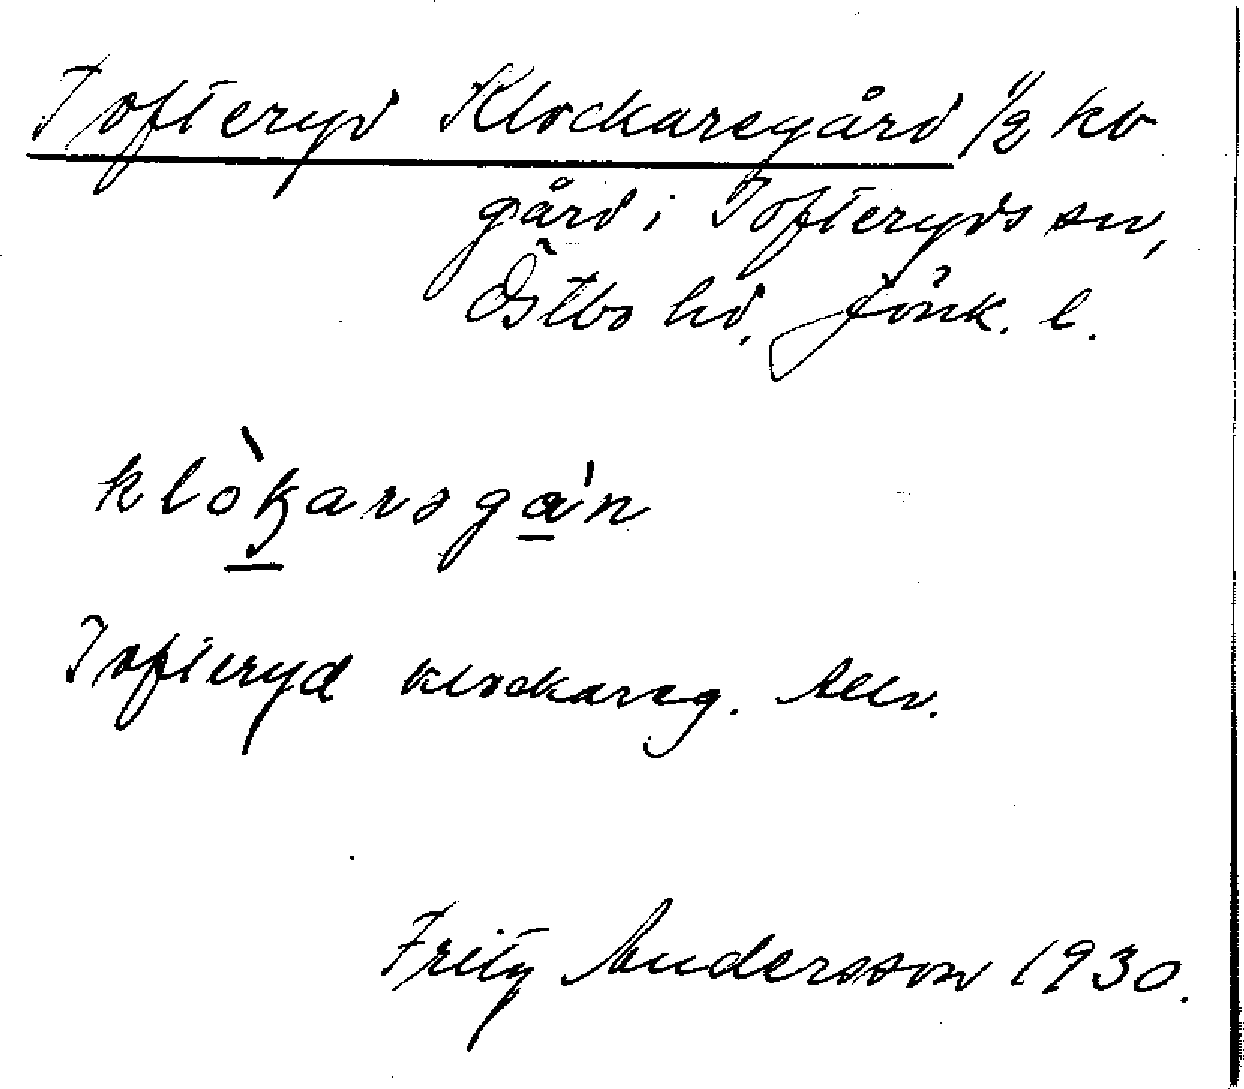 Tofteryd Klockaregård 1/2 kv
gård i Tofteryds sn,
Östbo hd, Jönk. l.
klòkarsga'n
Tofteryd klockareg.
Fritz Andersson 1930.